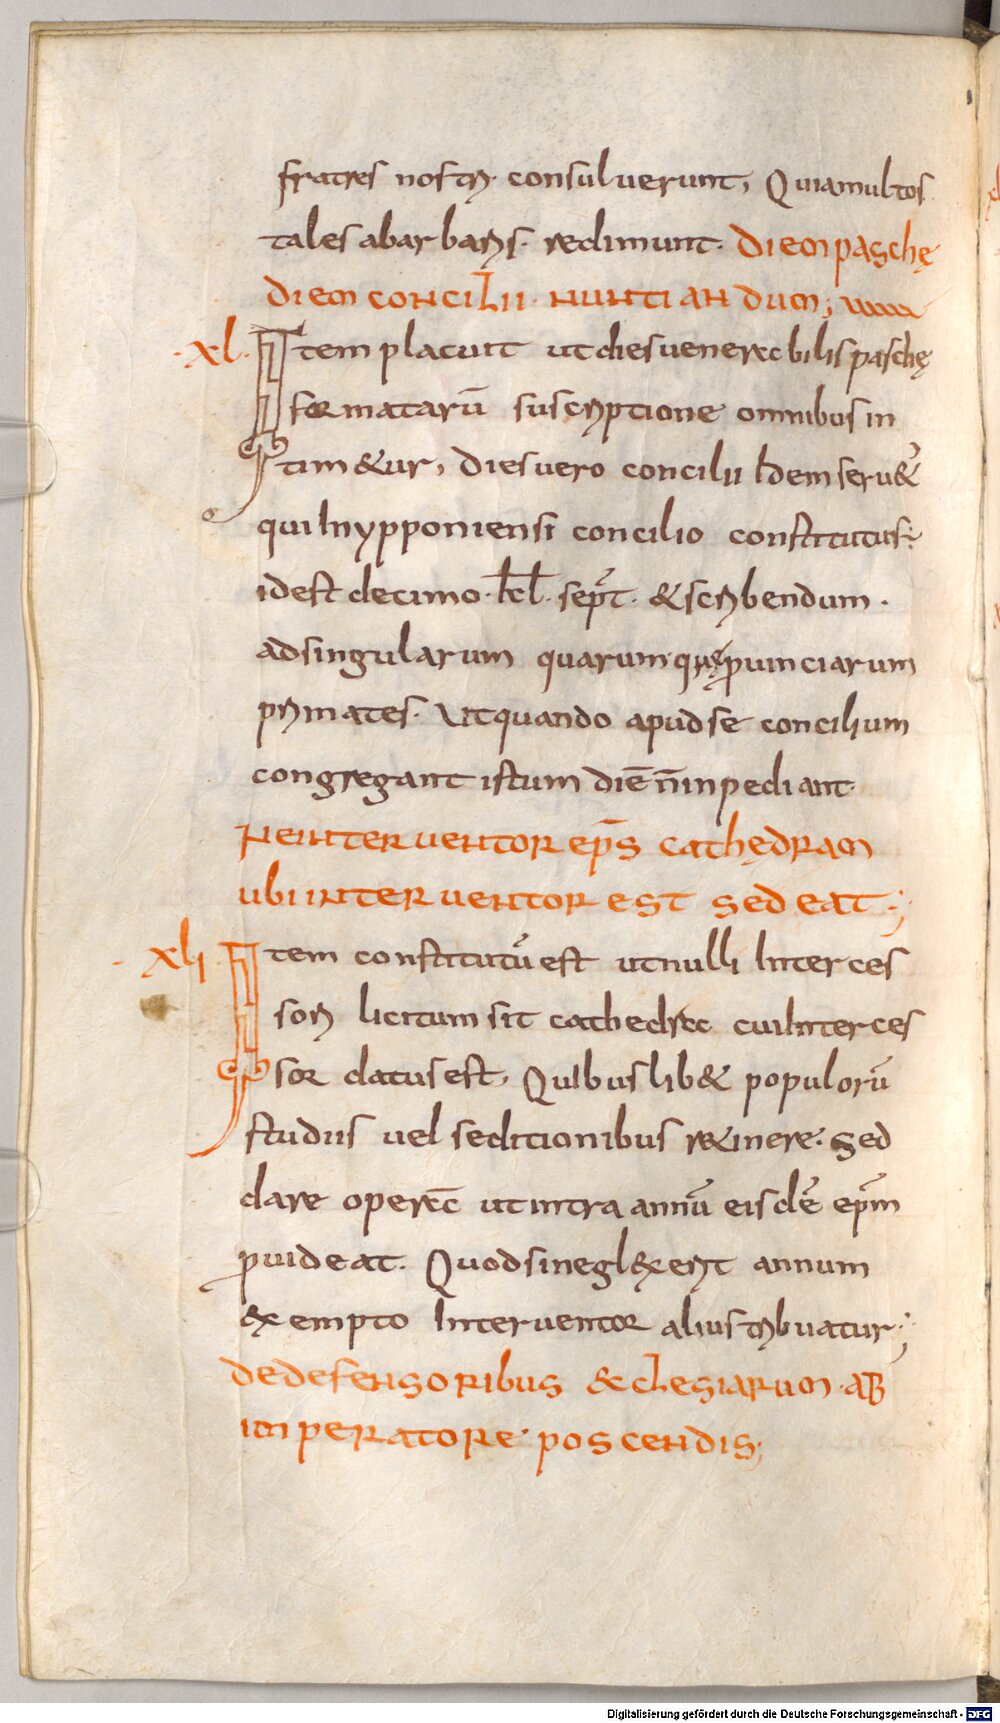 fratres nostri· consuluerunt, Quiamultos
tales abarbaris· redimunt· diem paschę
diem concilii· nuntiandum;
·xl· Item placuit ut dies uenerabilis paschę
formatarū suscriptione omnibus in
tim&ur, dies uero concilii Idem seru&
qui Inypponiensi concilio constitutus;
idest decimo· kl· sept· & scribendum·
adsingularum quarumquę puinciarum
primates· Ut quando apud se concilium
congregant istum diē n̄ inpediant·
Ne interuentor ep̄s cathędram
ubi interuentor est sedeat;
·xli· Item constitutū est ut nulli Interces
sori licitum sit cathedra cui Interces
sor datus est, Quibuslib& populorū
studiis uel seditionibus r&inere· sed
dare operā ut intra annū eisdē ep̄m
puideat· Quod si negl&xerit annum
&xempto Interuentor alius tribuatur;
de defensoribus &clesiarum· ab
imperatore poscendis;
Digitalisierung gefördert durch die Deutsche Forschungsgemeinschaft - DFG